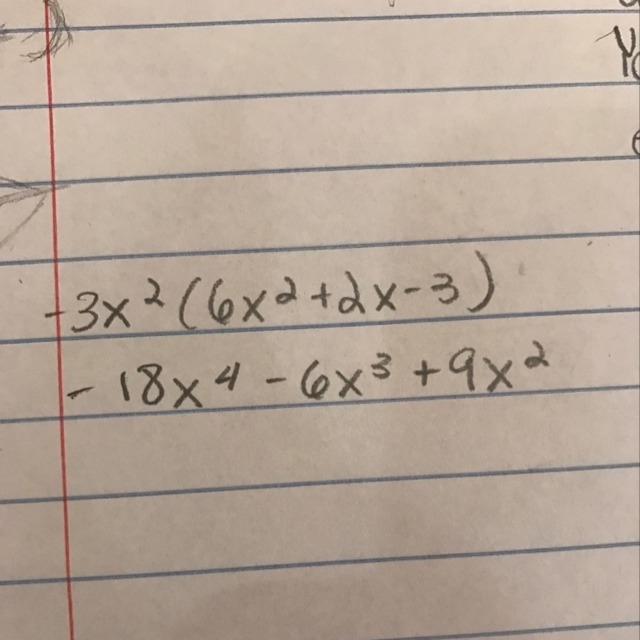 -3x²(6x²+2x-3)
-18x⁴-6x³+9x²